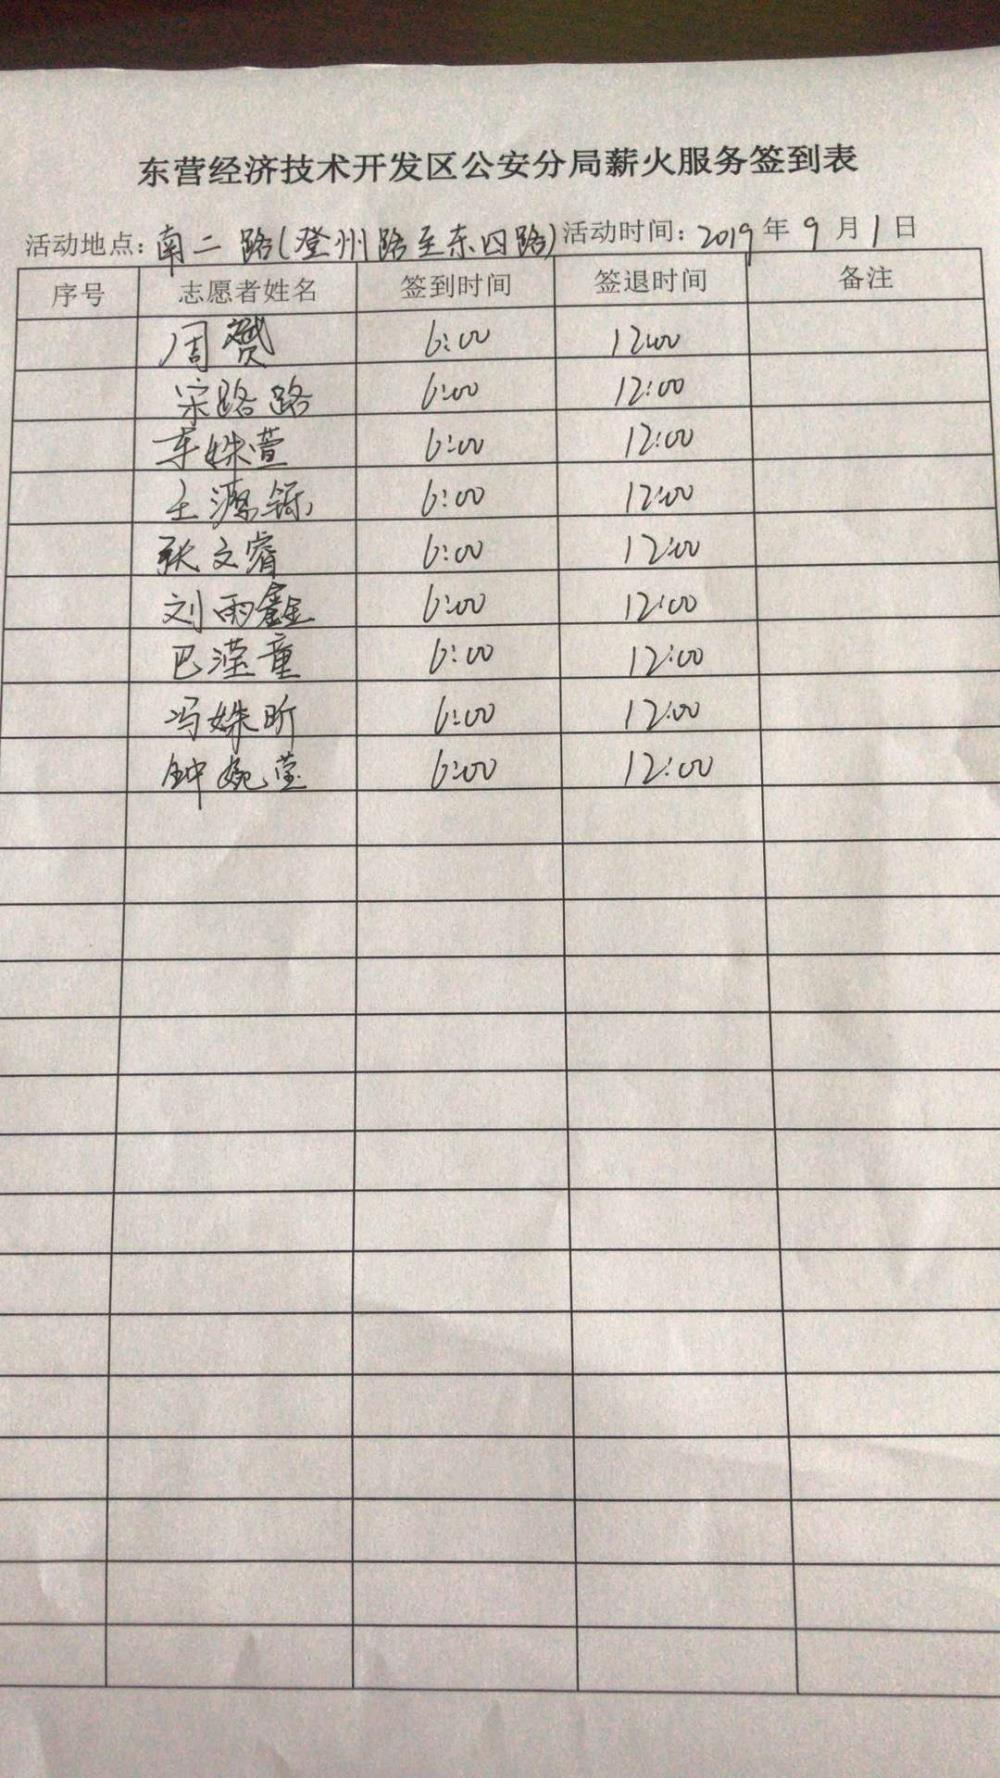 东营经济技术开发区公安分局薪火服务签到表
活动地点：南二路(登州路至东四路) 活动时间：2019年9月1日
序号 志愿者姓名 签到时间 签退时间 备注
周赟 6:00 12:00
宋路路 6:00 12:00
车姝萱 6:00 12:00
王源铄 6:00 12:00
耿文睿 6:00 12:00
刘雨鑫 6:00 12:00
巴滢童 6:00 12:00
冯姝昕 6:00 12:00
钟婉莹 6:00 12:00